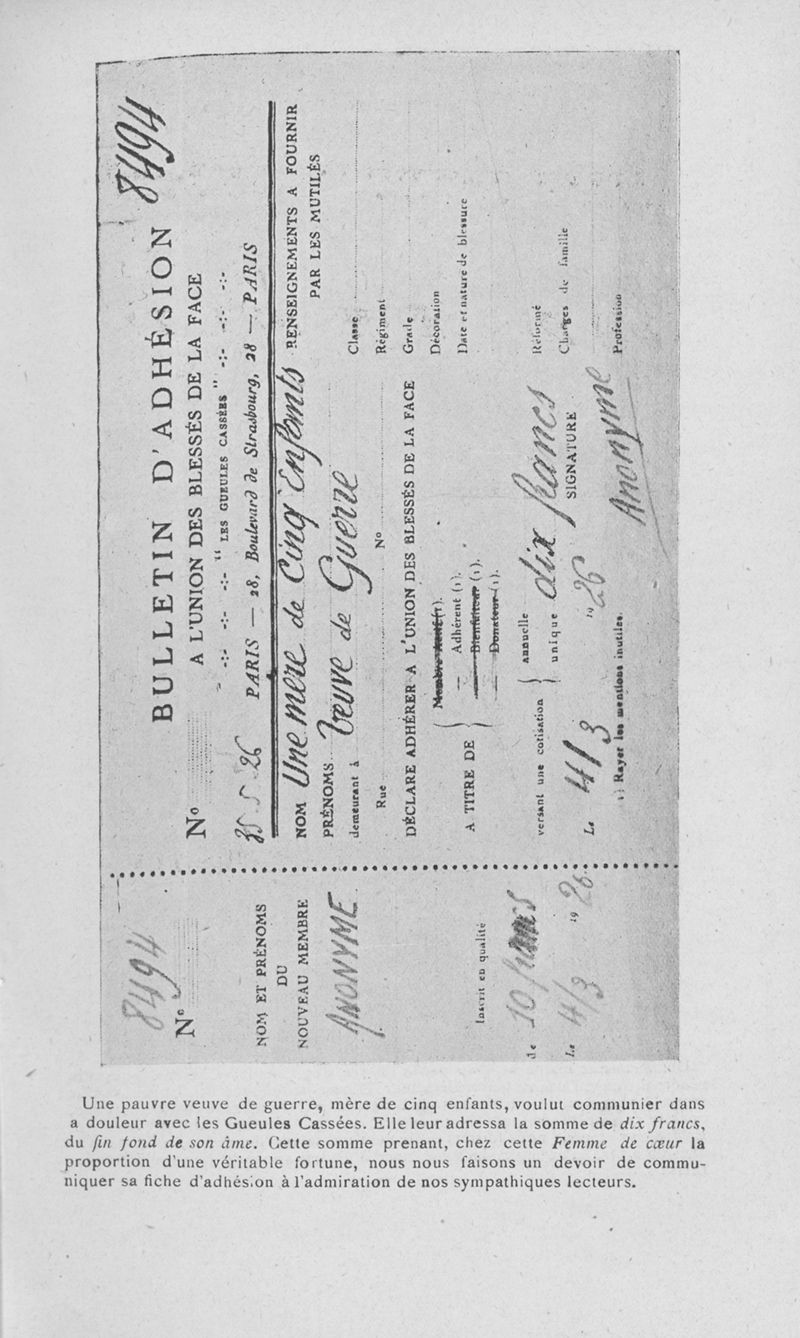 BULLETIN D'ADHÉSION 8494
A L'UNION DES BLESSÉS DE LA FACE
-:- -:- -:- " LES GUEULES CASSÉES " -:- -:- -:-
PARIS — 28, Boulevard de Strasbourg, 28 — PARIS
No
26
NOM Une mère de Cinq Enfants
PRÉNOMS Veuve de Guerre
demeurant à
Rue No
DÉCLARE ADHÉRER A L'UNION DES BLESSÉS DE LA FACE
A TITRE DE
Membre Actif (1).
— Adhérent (1).
— Bienfaiteur (1).
— Donateur (1).
versant une cotisation annuelle
unique dix francs
Le 4/3 1926 SIGNATURE
Anonyme
(1) Rayer les mentions inutiles.
RENSEIGNEMENTS A FOURNIR
PAR LES MUTILÉS
Classe
Régiment
Grade
Décoration
Date et nature de blessure
Réformé
Charges de famille
Profession
8494
No
NOM ET PRÉNOMS
DU
NOUVEAU MEMBRE
ANONYME
Inscrit en qualité
de 10 francs
Le 4/3 1926
Une pauvre veuve de guerre, mère de cinq enfants, voulut communier dans
a douleur avec les Gueules Cassées. Elle leur adressa la somme de dix francs,
du fin fond de son âme. Cette somme prenant, chez cette Femme de cœur la
proportion d'une véritable fortune, nous nous faisons un devoir de commu-
niquer sa fiche d'adhésion à l'admiration de nos sympathiques lecteurs.